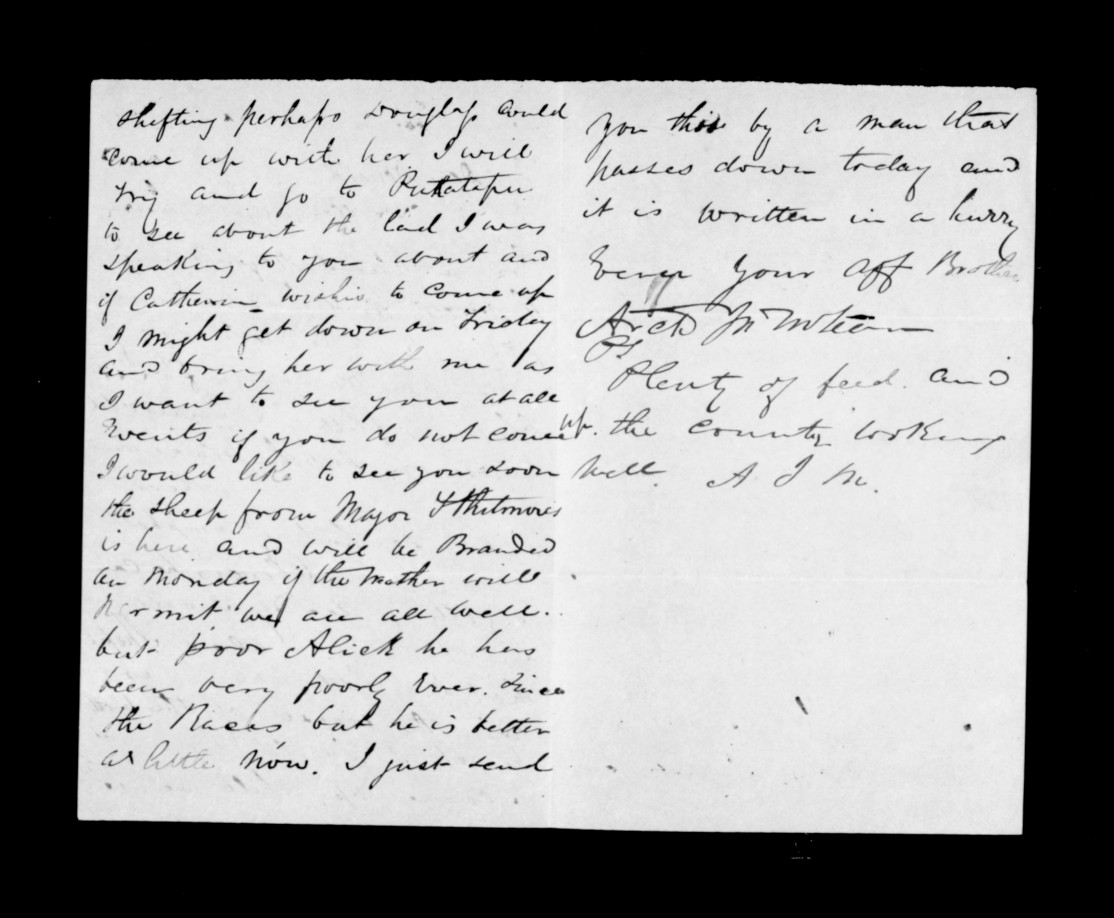 shifting perhaps Douglass could
come up with her I will
try and go to
to see about the lad I was
speaking to you about and
if Catherin wishis to come up
I might get down on Friday
and bring her with me as
I want to see you at all
Events if you do not come up.
I would like to see you soon
the sheep from Major Whitmores
is here and will be Branded
on Monday if the weather will
permit we are all well.
but poor Alick he has
been very poorly Ever. since
the Races but he is better
a little now. I just send
you this by a man that
passes down today and
it is written in a hurry
Ever your aff Brother
Arch McLean
PS
Plenty of feed. and
the county looking
well. A J M.